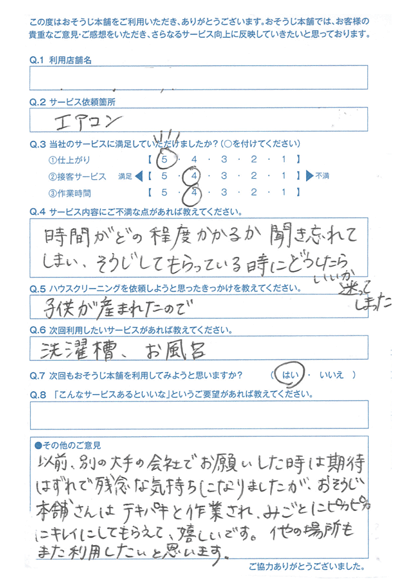 この度はおそうじ本舗をご利用いただき、ありがとうございます。おそうじ本舗では、お客様の
貴重なご意見・ご感想をいただき、さらなるサービス向上に反映していきたいと思っております。
Q.1 利用店舗名
Q.2 サービス依頼箇所
エアコン
Q.3 当社のサービスに満足していただけましたか?(○を付けてください)
①仕上がり 【 5 ・ 4 ・ 3 ・ 2 ・ 1 】
②接客サービス 満足 ◀【 5 ・ 4 ・ 3 ・ 2 ・ 1 】▶ 不満
③作業時間 【 5 ・ 4 ・ 3 ・ 2 ・ 1 】
Q.4 サービス内容にご不満な点があれば教えてください。
時間がどの程度かかるか聞き忘れて
しまい、そうじしてもらっている時にどうしたら
いいか迷って
しまった
Q.5 ハウスクリーニングを依頼しようと思ったきっかけを教えてください。
子供が産まれたので
Q.6 次回利用したいサービスがあれば教えてください。
洗濯槽、お風呂
Q.7 次回もおそうじ本舗を利用してみようと思いますか? ( はい ・ いいえ )
Q.8 「こんなサービスあるといいな」というご要望があれば教えてください。
●その他のご意見
以前、別の大手の会社でお願いした時は期待
はずれで残念な気持ちになりましたが、おそうじ
本舗さんはテキパキと作業され、みごとにピカピカ
にキレイにしてもらえて、嬉しいです。他の場所も
また利用したいと思います。
ご協力ありがとうございました。